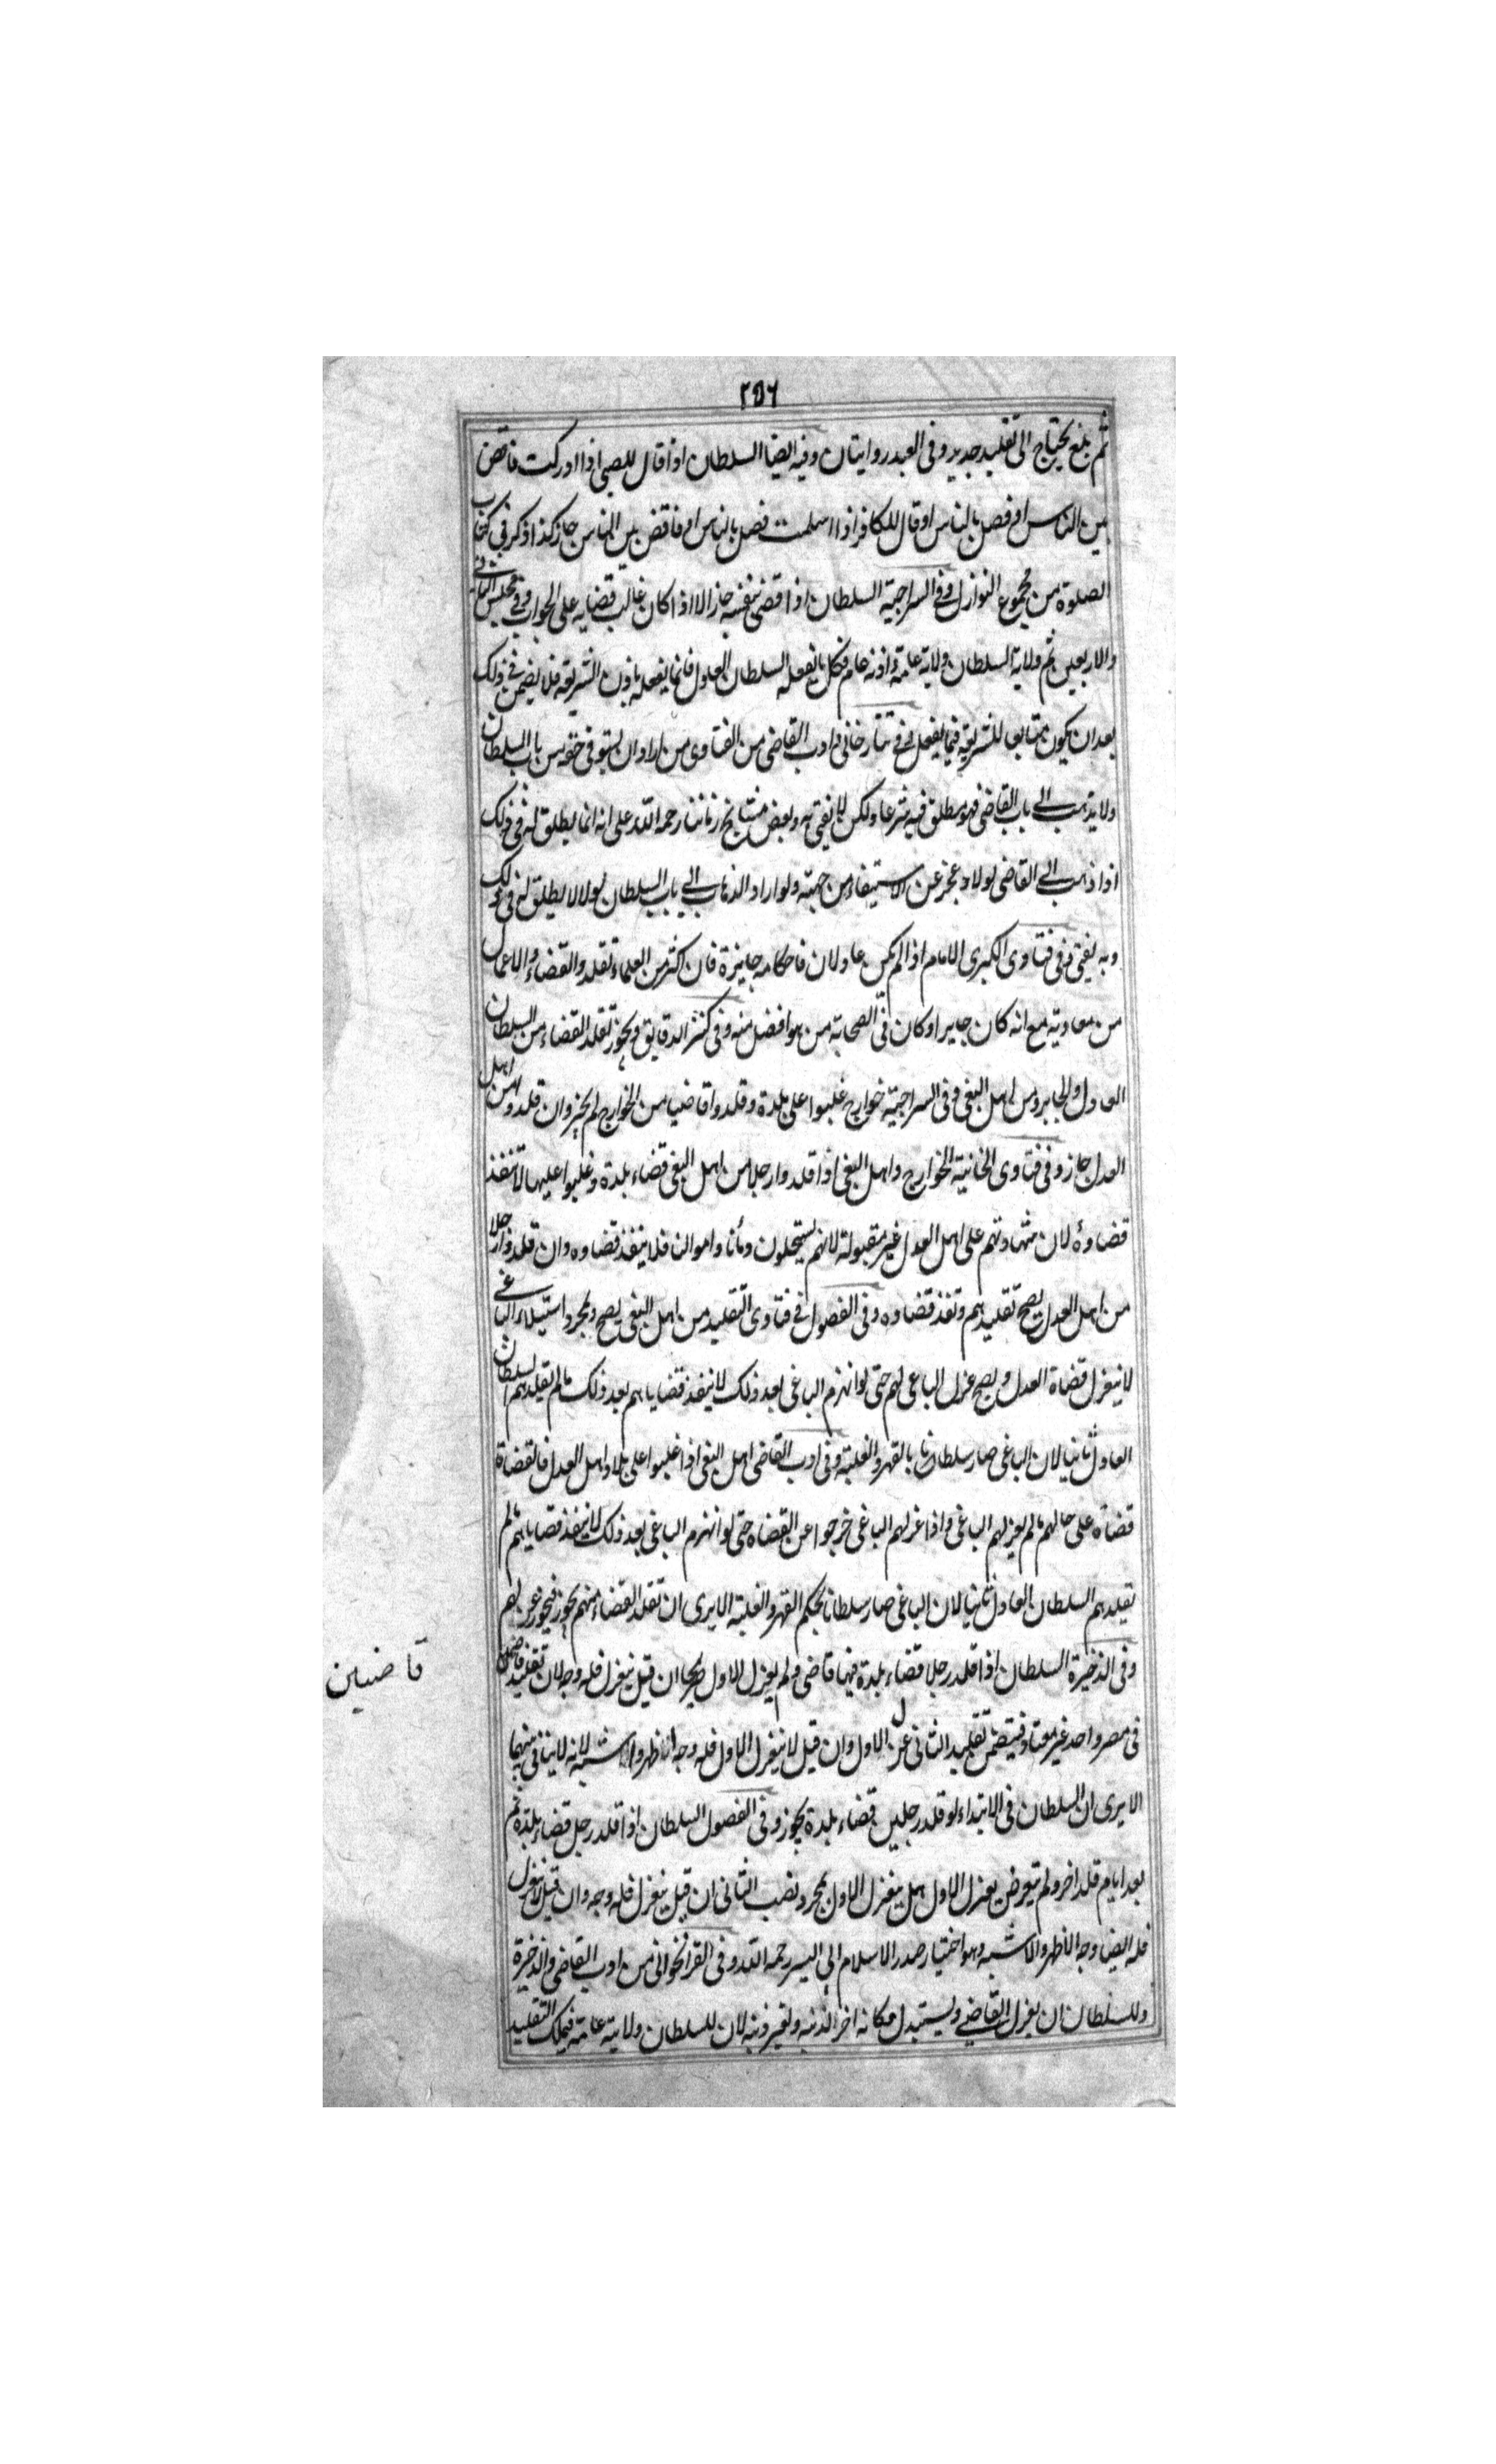 ٢٥٦
ثم بلغ يحتاج الى تقليد جديد وفى العبد روايتان وفيه ايضا السلطان اذا قال للصبى اذا ادركت فاقض
بين الناس او فصل بالناس او قال للكافر اذا اسلمت فصل بالناس او فاقض بين الناس جاز كذا ذكر فى كتاب
الصلوة من مجموع النوازل وفى السراجية السلطان اذا قضى بنفسه جاز الا اذا كان غالب قضايه على الجواب وفى مجلس الثانى
والاربعين ثم ولاية السلطان ولاية عامة واذنه عام فكل ما يفعله السلطان العدول فانما يفعله باذن الشريعة فلا يضمن فى ذلك
بعد ان يكون متابعا للشريعة فيما يفعل وفى تتارخانى فى ادب القاضى من الفتاوى من اراد ان يستوفى حقه من باب السلطان
ولا يذهب الى باب القاضى فهو مطلق فيه شرعا ولكن لا يفتى به وبعض مشايخ زماننا رحمه الله على انه انما يطلق له فى ذلك
اذا ذهب الى القاضى اولا وعجز عن الاستيفاء من جهته ولو اراد الذهاب الى باب السلطان اولا لا يطلق له فى ذلك
وبه يفتى وفى فتاوى الكبرى الامام اذا لم يكن عادلا فاحكامه جايزة فان اكثر من العلماء تقلدوا القضاء والاعمال
من معاوية مع انه كان جايرا وكان فى الصحابة من هو افضل منه وفى كنز الدقايق ويجوز تقلد القضاء من السلطان
العادل والجابر ومن اهل البغى وفى السراجية خوارج غلبوا على بلدة وقلدوا قاضيا من الخوارج لم يجز وان قلدوا من اهل
العدل جاز وفى فتاوى الخانية الخوارج واهل البغى اذا قلدوا رجلا من اهل البغى قضاء بلدة وغلبوا عليها لا تنفذ
قضاوٴه لان شهادتهم على اهل العدل غير مقبولة لانهم يستحلون دمأنا واموالنا فلا ينفذ قضاوه وان قلدوا رجلا
من اهل العدل يصح تقليدهم وتنفذ قضاوه وفى الفصول فى فتاوى التقليد من اهل البغى يصح وبمجرد استيلاء الباغى
لا ينعزل قضاة العدل ويصح عزل الباغى لهم حتى لو انهزم الباغى بعد ذلك لا ينفذ قضاياهم بعد ذلك مالم يقلدهم السلطان
العادل ثانيا لان الباغى صار سلطانا بالقهر والغلبة وفى ادب القاضى اهل البغى اذا غلبوا على بلاد اهل العدل فالقضاة
قضاة على حالهم مالم يعزلهم الباغى واذا عزلهم الباغى خرجوا عن القضاء حتى لو انهزم الباغى بعد ذلك لا ينفذ قضاياهم مالم
يقلدهم السلطان العادل ثانيا لان الباغى صار سلطانا بحكم القهر والغلبة الا يرى ان تقلد القضاء منهم يجوز فيجوز عزلهم
وفى الذخيرة السلطان اذا قلد رجلا قضاء بلدة فيها قاضى ولم يعزل الاول صريحا ان قيل ينعزل فله وجه لان تقليد قاضيين
قاضيين
فى مصر واحد غير معتاد فيتضمن تقليد الثانى عزل الاول وان قيل لا ينعزل الاول فله وجه انه اظهر والاشبه لانه لا ينافى بينهما
الا يرى ان السلطان فى الابتداء لو قلد رجلين قضاء بلدة يجوز وفى الفصول السلطان اذا قلد رجل قضاء بلدة ثم
بعد ايام قلد اخر ولم يتعرض بعزل الاول هل ينعزل الاول بمجرد نصب الثانى ان قيل ينعزل فله وجه وان قيل لا ينعزل
فله ايضا وجه الاظهر والاشبه وهو اختيار صدر الاسلام ابى اليسر رحمه الله وفى القراخوانى من ادب القاضى والذخيرة
وللسلطان ان يعزل القاضى ويستبدل مكانه اخر لذنبه ولغير ذنبه لان للسلطان ولاية عامة فيملك التقليد